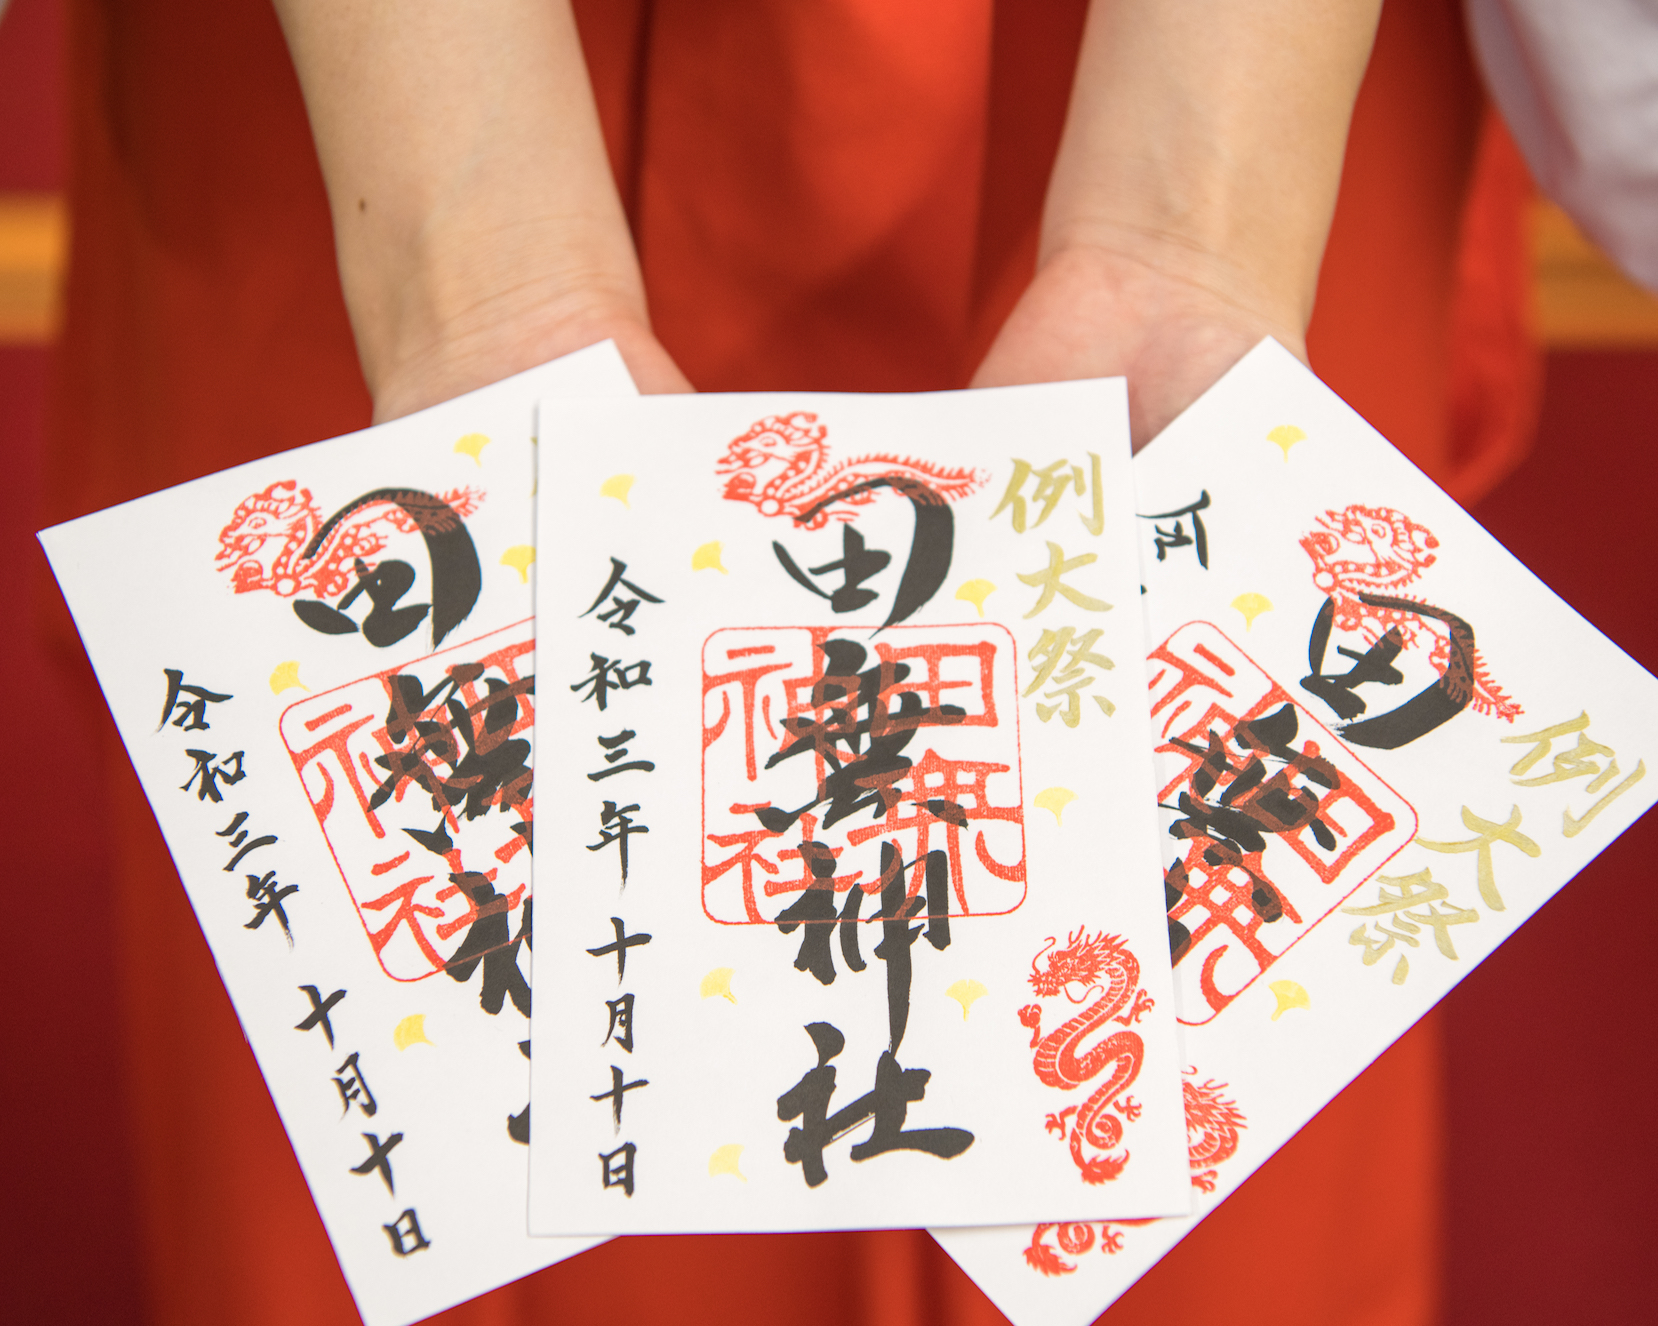 田無神社
令和三年 十月十日
例大祭
田無神社
令和三年 十月十日
田無神社
例大祭
田無
田無